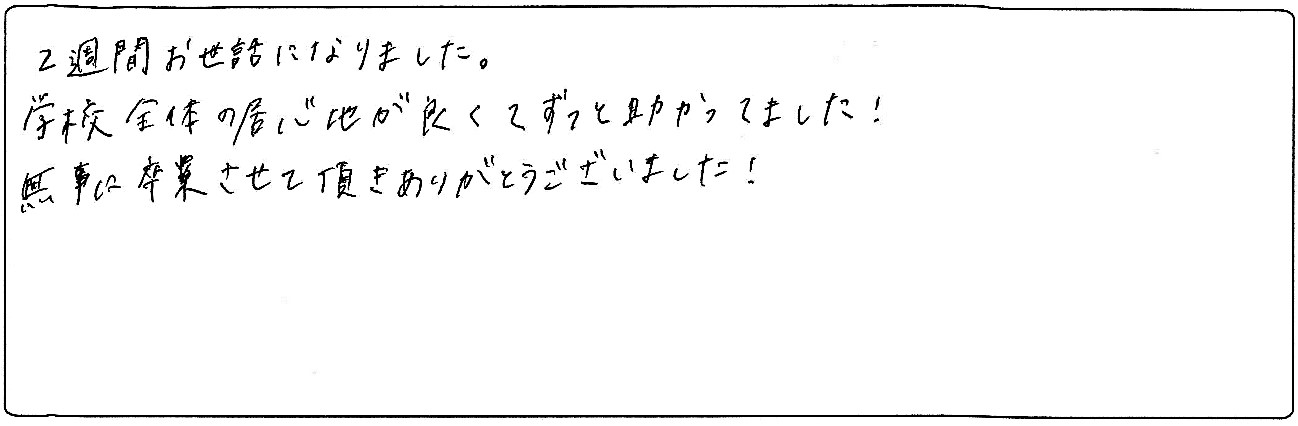 2週間お世話になりました。
学校全体の居心地が良くてずっと助かってました！
無事に卒業させて頂きありがとうございました！